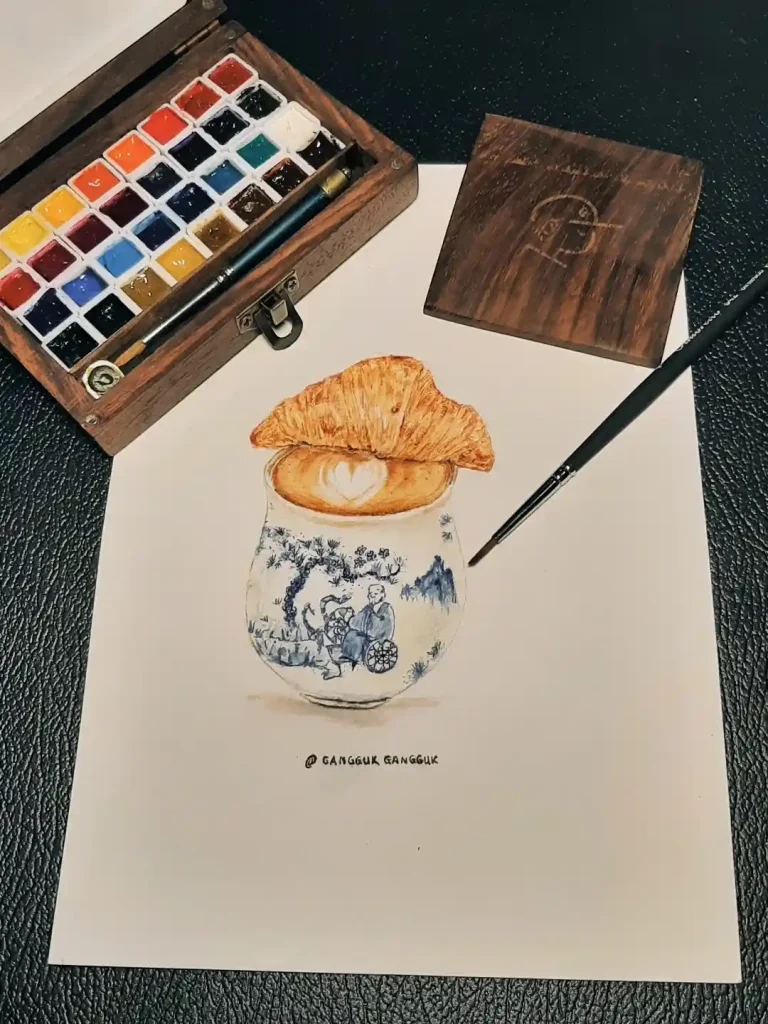 @ GANGGUK GANGGUK